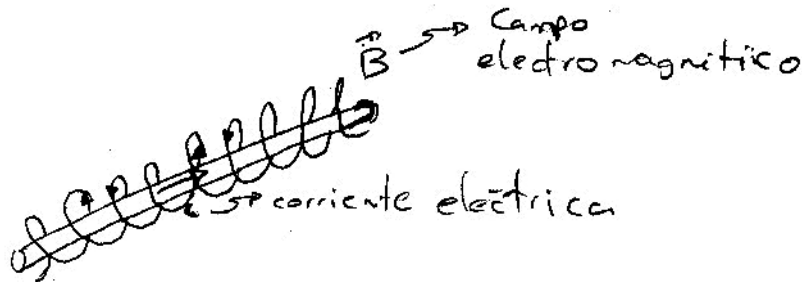 B⃗ → Campo
electromagnitico
i → corriente eléctrica